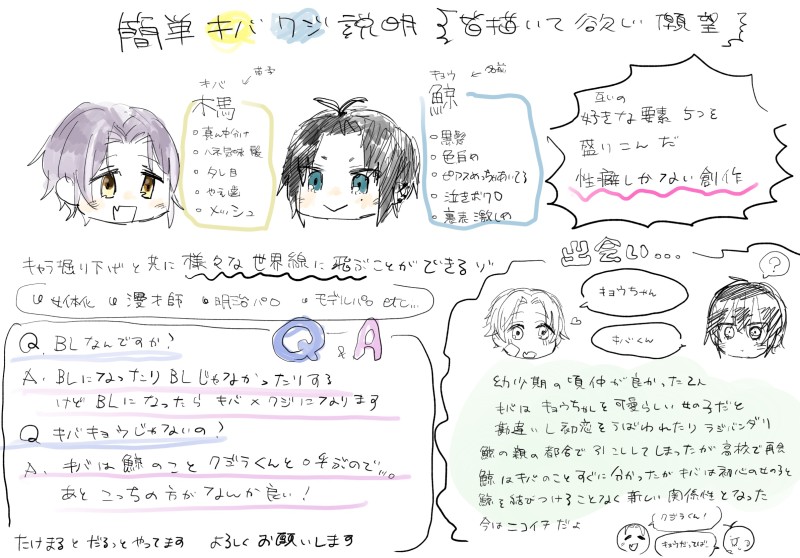 簡単キバクジ説明 {皆描いて欲しい願望}
キバ ← 苗字
木馬
○真ん中分け
○ハネ気味髪
○タレ目
○やえ歯
○メッシュ
キョウ ← 名前
鯨
○黒髪
○色白め
○ピアスめっちゃあいてる
○泣きボクロ
○裏表激しめ
互いの
好きな要素5つを
盛りこんだ
性癖しかない創作
キャラ掘り下げと共に 様々な世界線に飛ぶことができるゾ
女体化 漫才師 明治パロ モデルパロ etc...
Q&A
Q. BLなんですか?
A. BLになったりBLじゃなかったりする
けどBLになったらキバ×クジになります
Q キバキョウじゃないの?
A. キバは鯨のことクゴラくんと呼ぶので...。
あとこっちの方がなんか良い!
たけまるとだるっとやってます よろしくお願いします
出会い...
キョウちゃん
?
キバくん
幼少期の頃仲が良かった2人
キバはキョウちゃんを可愛らしい女の子だと
勘違いし初恋をうばわれたりラジバンダリ
鯨の親の都合で引こししてしまったが高校で再会
鯨はキバのことすぐに分かったがキバは初恋の女の子と
鯨を結びつけることなく新しい関係性となった
今はニコイチだよ
クゴラくん!
キョウだってば...